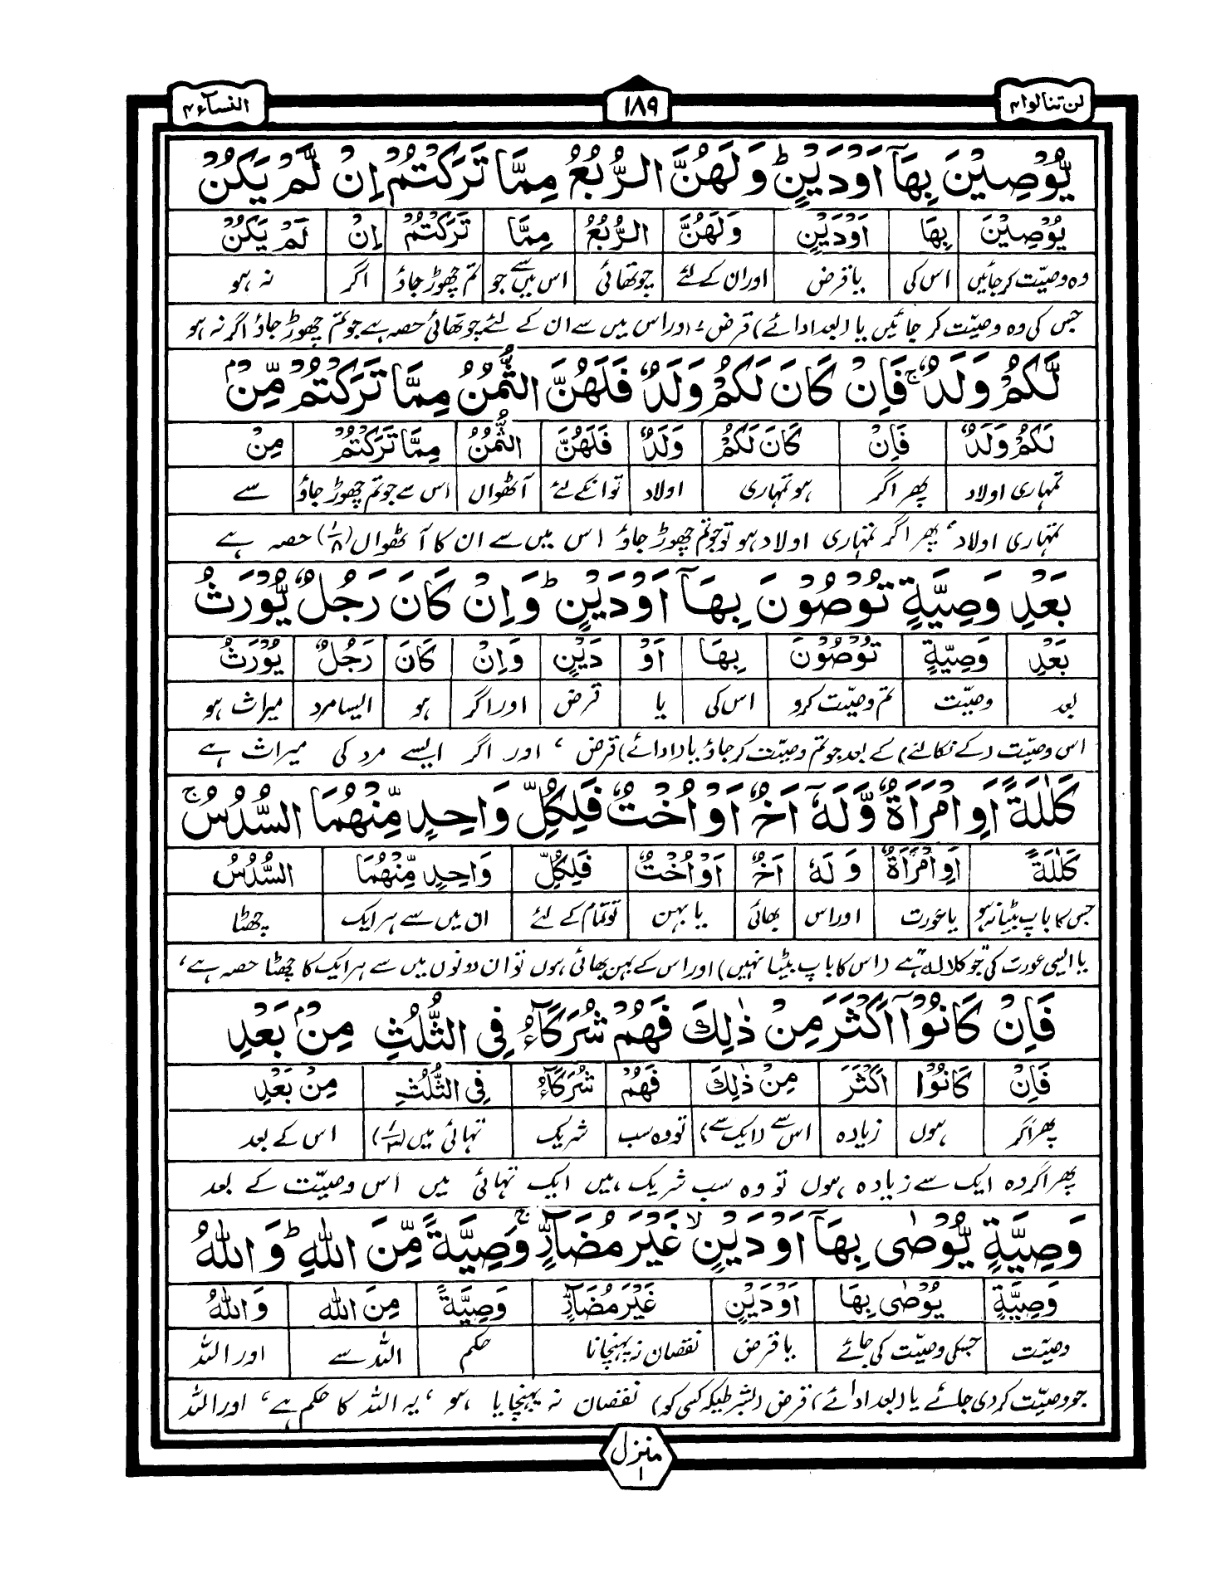 لن تنالوا ۴
۱۸۹
النسآء ۴
يُّوْصِيْنَ بِهَآ اَوْدَيْنٍ ؕ وَلَهُنَّ الرُّبُعُ مِمَّا تَرَكْتُمْ اِنْ لَّمْ يَكُنْ
يُوْصِيْنَ بِهَا اَوْدَيْنٍ وَلَهُنَّ الرُّبُعُ مِمَّا تَرَكْتُمْ اِنْ لَمْ يَكُنْ
وہ وصیّت کر جائیں اس کی یا قرض اور ان کے لئے چوتھائی اس میں سے جو تم چھوڑ جاؤ اگر نہ ہو
جس کی وہ وصیّت کر جائیں یا (بعد ادائے) قرض، اور اس میں سے ان کے لئے چوتھائی حصہ ہے جو تم چھوڑ جاؤ اگر نہ ہو
لَّكُمْ وَلَدٌ ۚ فَاِنْ كَانَ لَكُمْ وَلَدٌ فَلَهُنَّ الثُّمُنُ مِمَّا تَرَكْتُمْ مِّنْۢ
لَكُمْ وَلَدٌ فَاِنْ كَانَ لَكُمْ وَلَدٌ فَلَهُنَّ الثُّمُنُ مِمَّا تَرَكْتُمْ مِنْ
تمہاری اولاد پھر اگر ہو تمہاری اولاد تو انکے لئے آٹھواں اس سے جو تم چھوڑ جاؤ سے
تمہاری اولاد، پھر اگر تمہاری اولاد ہو تو جو تم چھوڑ جاؤ اس میں سے ان کا آٹھواں (۱/۸) حصہ ہے
بَعْدِ وَصِيَّةٍ تُوْصُوْنَ بِهَآ اَوْدَيْنٍ ؕ وَاِنْ كَانَ رَجُلٌ يُّوْرَثُ
بَعْدِ وَصِيَّةٍ تُوْصُوْنَ بِهَا اَوْ دَيْنٍ وَاِنْ كَانَ رَجُلٌ يُوْرَثُ
بعد وصیّت تم وصیّت کرو اس کی یا قرض اور اگر ہو ایسا مرد میراث ہو
اس وصیّت (کے نکالنے) کے بعد جو تم وصیّت کر جاؤ یا (ادائے) قرض، اور اگر ایسے مرد کی میراث ہے
كَلٰلَةً اَوِ امْرَاَةٌ وَّلَهٗٓ اَخٌ اَوْ اُخْتٌ فَلِكُلِّ وَاحِدٍ مِّنْهُمَا السُّدُسُ ۚ
كَلٰلَةً اَوِ امْرَاَةٌ وَ لَهٗ اَخٌ اَوْ اُخْتٌ فَلِكُلِّ وَاحِدٍ مِّنْهُمَا السُّدُسُ
جس کا باپ بیٹا نہ ہو یا عورت اور اس بھائی یا بہن تو تمام کے لئے ان میں سے ہر ایک چھٹا
یا ایسی عورت کی جو کلالہ ہے (اس کا باپ بیٹا نہیں) اور اس کے بہن بھائی ہوں تو ان دونوں میں سے ہر ایک کا چھٹا حصہ ہے،
فَاِنْ كَانُوْٓا اَكْثَرَ مِنْ ذٰلِكَ فَهُمْ شُرَكَآءُ فِى الثُّلُثِ مِنْۢ بَعْدِ
فَاِنْ كَانُوْا اَكْثَرَ مِنْ ذٰلِكَ فَهُمْ شُرَكَآءُ فِى الثُّلُثِ مِنْ بَعْدِ
پھر اگر ہوں زیادہ اس سے (ایک سے) تو وہ سب شریک تہائی میں (۱/۳) اس کے بعد
پھر اگر وہ ایک سے زیادہ ہوں تو وہ سب شریک ہیں ایک تہائی میں اس وصیّت کے بعد
وَصِيَّةٍ يُّوْصٰى بِهَآ اَوْ دَيْنٍ ۙ غَيْرَ مُضَآرٍّ ۚ وَصِيَّةً مِّنَ اللهِ ؕ وَاللهُ
وَصِيَّةٍ يُوْصٰى بِهَا اَوْدَيْنٍ غَيْرَ مُضَآرٍّ وَصِيَّةً مِنَ اللهِ وَاللهُ
وصیّت جسکی وصیّت کی جائے یا قرض نقصان نہ پہنچانا حکم اللہ سے اور اللہ
جو وصیّت کر دی جائے یا (بعد ادائے) قرض (بشرطیکہ کسی کو) نقصان نہ پہنچایا ہو، یہ اللہ کا حکم ہے، اور اللہ
منزل ۱